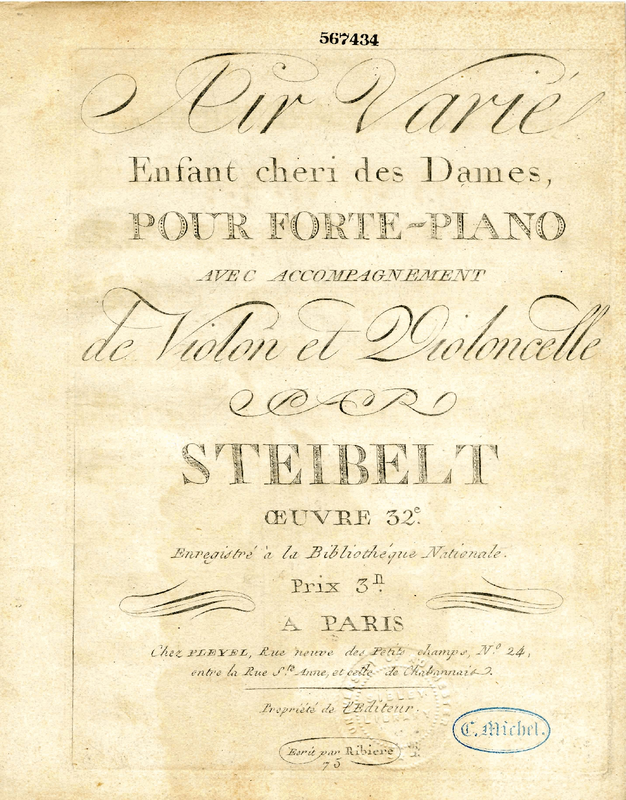 567434
Air Varié
Enfant cheri des Dames,
POUR FORTE-PIANO
AVEC ACCOMPAGNEMENT
de Violon et Violoncelle
PAR
STEIBELT
ŒUVRE 32e.
Enregistré à la Bibliothéque Nationale.
Prix 3ᶩᶩ
A PARIS
Chez PLEYEL, Rue neuve des Petits champs, No. 24,
entre la Rue Ste. Anne, et celle de Chabannais.
Propriété de l'Editeur.
C. Michel.
Ecrit par Ribiere
75